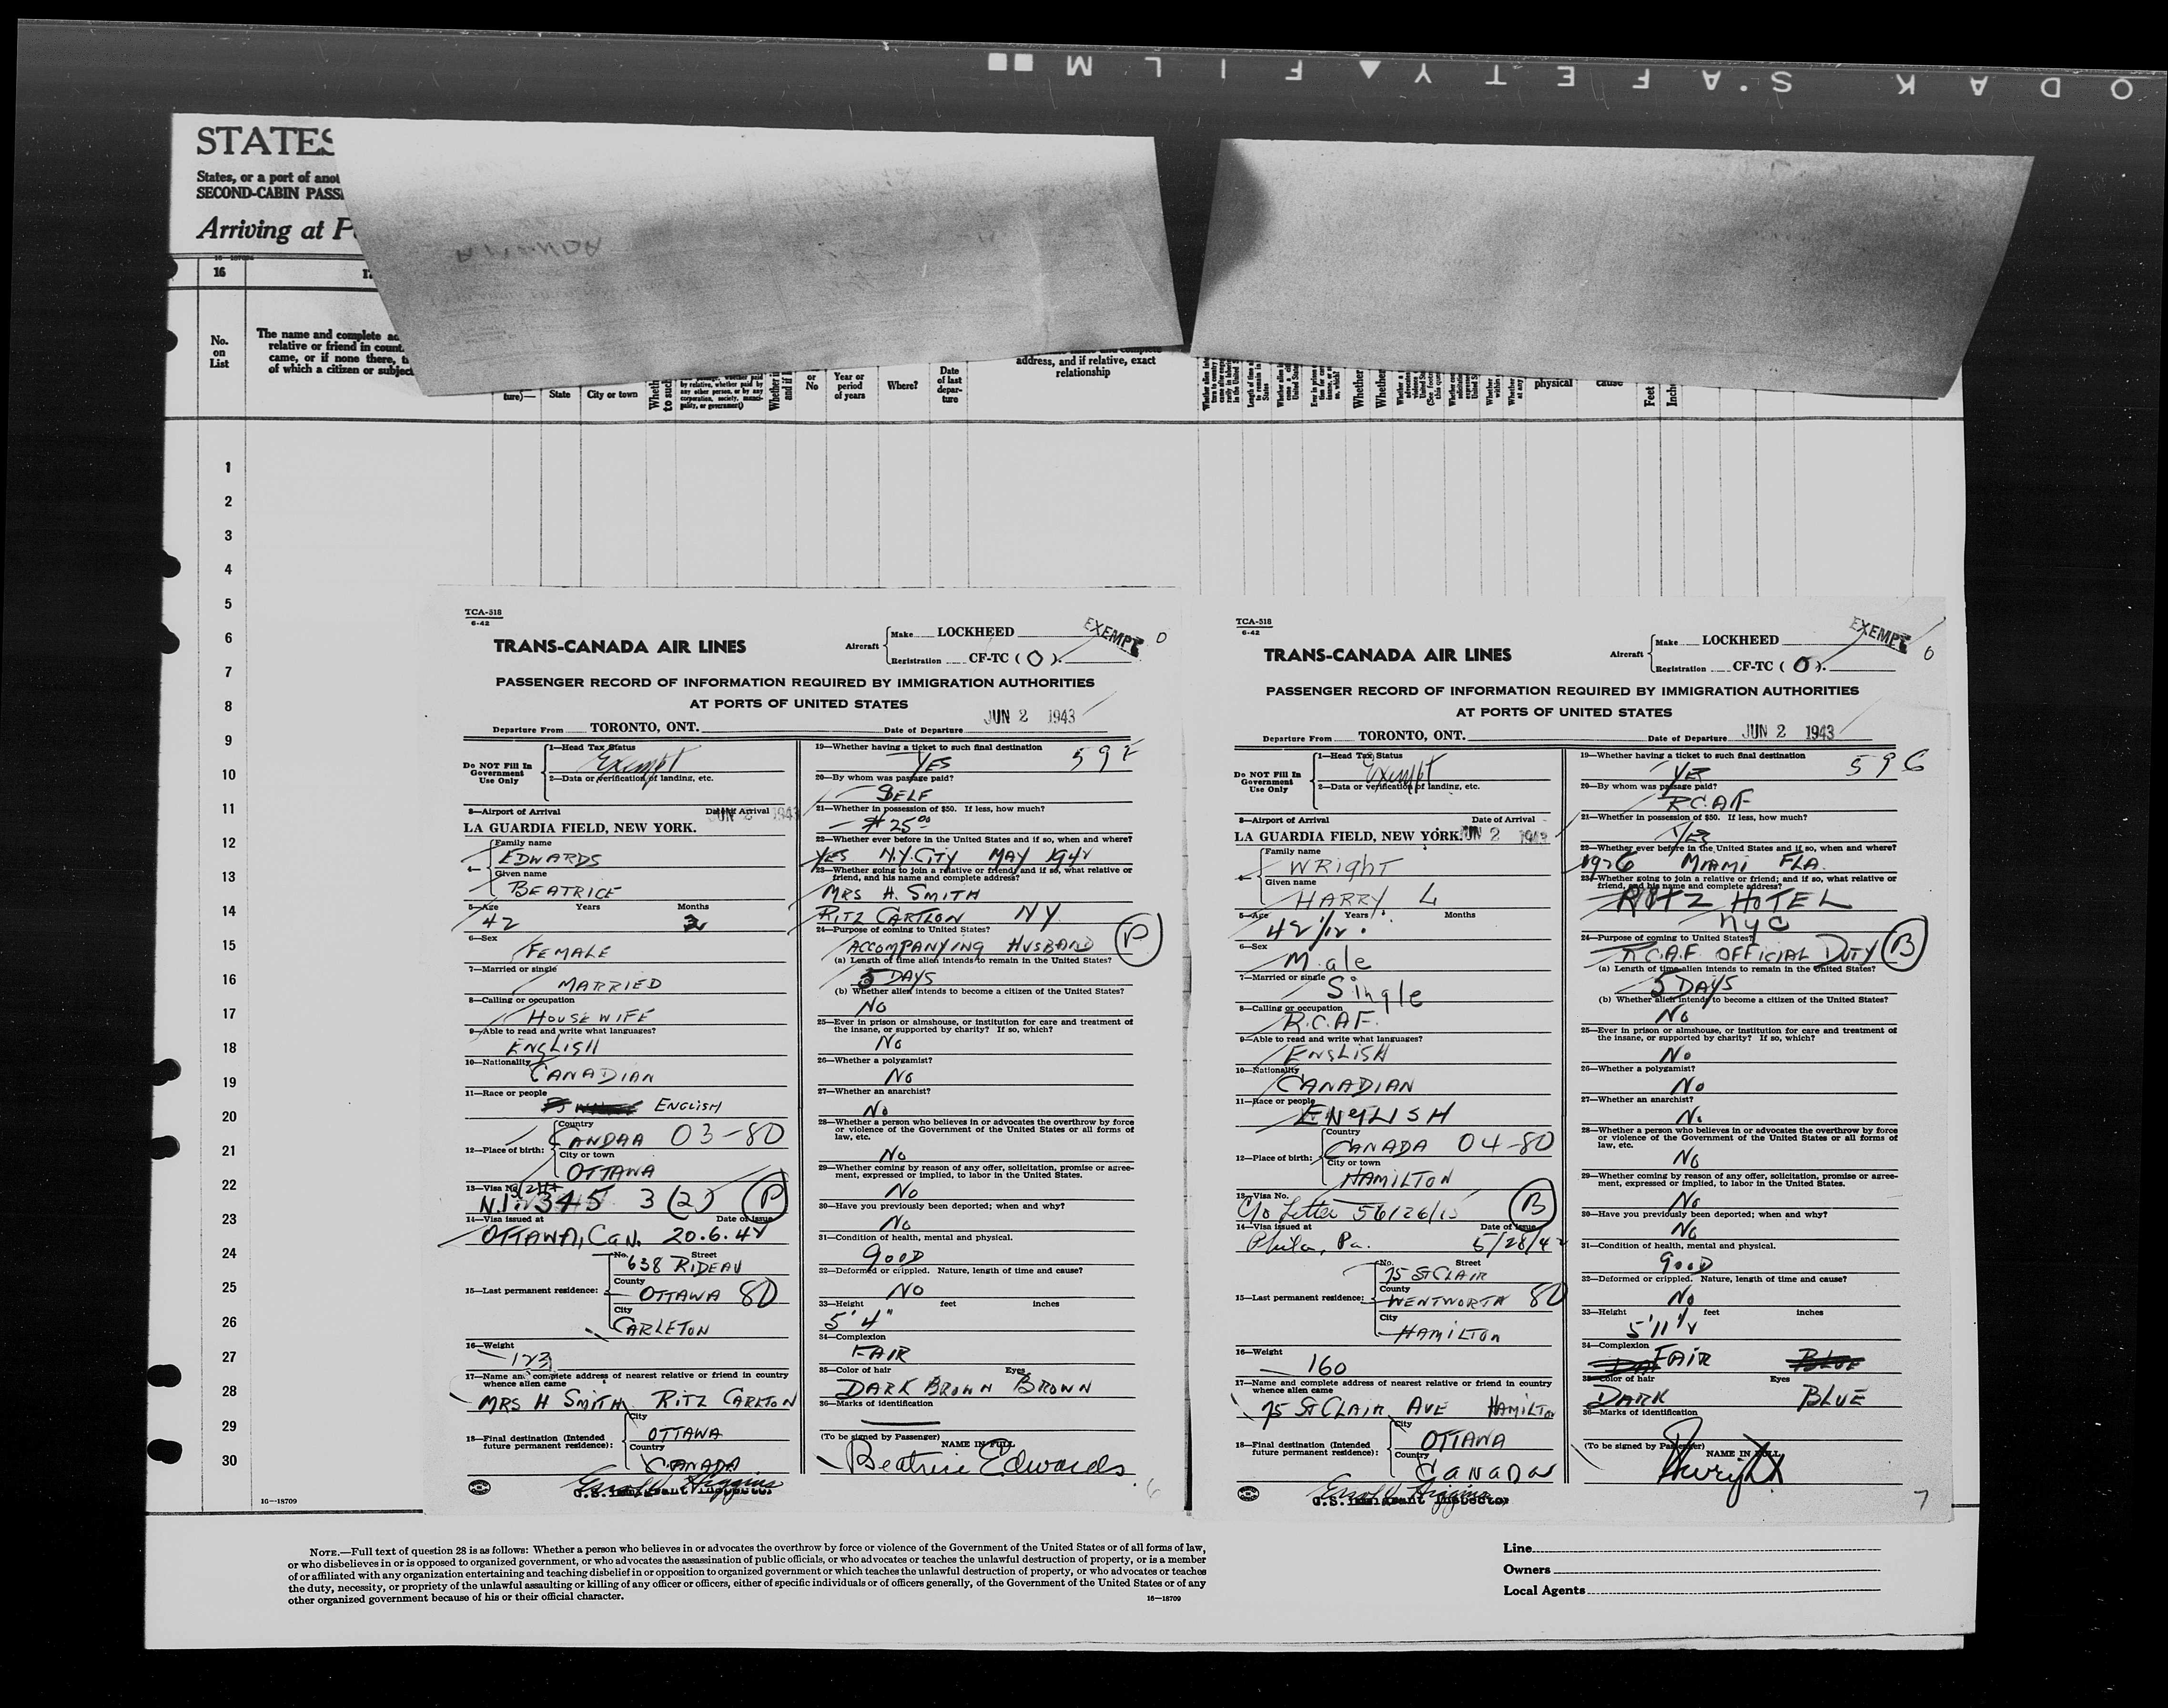 ODAK S.AFETY▲FILM■■
STATES
States, or a port of anot
SECOND-CABIN PASS
Arriving at P
16
No.
on
List
The name and complete
relative or friend in count
came, or if none there,
of which a citizen or subject
ture)—
State
City or town
Wheth
to such
by relative, whether paid by
any other person, or by any
corporation, society, munici-
pality, or government)
or
No
Year or
period
of years
Where?
Date
of last
depar-
ture
address, and if relative, exact
relationship
Whether
Whether
physical
cause
Feet
Inche
1
2
3
4
5
6
7
8
9
10
11
12
13
14
15
16
17
18
19
20
21
22
23
24
25
26
27
28
29
30
16—18709
TCA-518
6-42
TRANS-CANADA AIR LINES
Aircraft
Make LOCKHEED
Registration CF-TC ( O ).
EXEMPT
0
PASSENGER RECORD OF INFORMATION REQUIRED BY IMMIGRATION AUTHORITIES
AT PORTS OF UNITED STATES
JUN 2 1943
Departure From TORONTO, ONT. Date of Departure
Do NOT Fill In
Government
Use Only
1—Head Tax Status
Exempt
2—Data or verification of landing, etc.
3—Airport of Arrival Date of Arrival
JUN 2 1943
LA GUARDIA FIELD, NEW YORK.
4—
Family name
EDWARDS
Given name
BEATRICE
5—Age Years Months
42
6—Sex
FEMALE
7—Married or single
MARRIED
8—Calling or occupation
HOUSEWIFE
9—Able to read and write what languages?
ENGLISH
10—Nationality
CANADIAN
11—Race or people
ENGLISH
12—Place of birth:
Country
CANDAA 03-80
City or town
OTTAWA
13—Visa No.
345 3(2) P
14—Visa issued at Date of Issue
OTTAWA, CAN. 20.6.42
15—Last permanent residence:
No. Street
638 RIDEAU
County
OTTAWA 80
City
CARLETON
16—Weight
123
17—Name and complete address of nearest relative or friend in country
whence alien came
MRS H SMITH RITZ CARLTON
18—Final destination (Intended
future permanent residence):
City
OTTAWA
Country
CANADA
U.S. Immigrant Inspector
19—Whether having a ticket to such final destination
YES 59
20—By whom was passage paid?
SELF
21—Whether in possession of $50. If less, how much?
$25.00
22—Whether ever before in the United States and if so, when and where?
YES N.Y. CITY MAY 1942
23—Whether going to join a relative or friend; and if so, what relative or
friend, and his name and complete address?
MRS H. SMITH
RITZ CARTLON NY
24—Purpose of coming to United States?
ACCOMPANYING HUSBAND P
(a) Length of time alien intends to remain in the United States?
5 DAYS
(b) Whether alien intends to become a citizen of the United States?
NO
25—Ever in prison or almshouse, or institution for care and treatment of
the insane, or supported by charity? If so, which?
NO
26—Whether a polygamist?
NO
27—Whether an anarchist?
NO
28—Whether a person who believes in or advocates the overthrow by force
or violence of the Government of the United States or all forms of
law, etc.
NO
29—Whether coming by reason of any offer, solicitation, promise or agree-
ment, expressed or implied, to labor in the United States.
NO
30—Have you previously been deported; when and why?
NO
31—Condition of health, mental and physical.
GOOD
32—Deformed or crippled. Nature, length of time and cause?
NO
33—Height feet inches
5' 4"
34—Complexion
FAIR
35—Color of hair Eyes
DARK BROWN BROWN
36—Marks of identification
(To be signed by Passenger)
NAME IN FULL
Beatrice Edwards
6
TCA-518
6-42
TRANS-CANADA AIR LINES
Aircraft
Make LOCKHEED
Registration CF-TC ( O ).
EXEMPT
0
PASSENGER RECORD OF INFORMATION REQUIRED BY IMMIGRATION AUTHORITIES
AT PORTS OF UNITED STATES
JUN 2 1943
Departure From TORONTO, ONT. Date of Departure
Do NOT Fill In
Government
Use Only
1—Head Tax Status
Exempt
2—Data or verification of landing, etc.
3—Airport of Arrival Date of Arrival
LA GUARDIA FIELD, NEW YORK. JUN 2 1943
4—
Family name
WRIGHT
Given name
HARRY L
5—Age Years Months
42 1/12
6—Sex
Male
7—Married or single
Single
8—Calling or occupation
R.C.A.F.
9—Able to read and write what languages?
ENGLISH
10—Nationality
CANADIAN
11—Race or people
ENGLISH
12—Place of birth:
Country
CANADA 04-80
City or town
HAMILTON
13—Visa No.
C/O Letter B
14—Visa issued at Date of Issue
Phila, Pa.
15—Last permanent residence:
No. Street
75 ST CLAIR
County
WENTWORTH 80
City
HAMILTON
16—Weight
160
17—Name and complete address of nearest relative or friend in country
whence alien came
75 ST CLAIR AVE HAMILTON
18—Final destination (Intended
future permanent residence):
City
OTTAWA
Country
CANADA
U.S. Immigrant Inspector
19—Whether having a ticket to such final destination
YES 596
20—By whom was passage paid?
R.C.A.F
21—Whether in possession of $50. If less, how much?
YES
22—Whether ever before in the United States and if so, when and where?
1926 MIAMI FLA.
23—Whether going to join a relative or friend; and if so, what relative or
friend, and his name and complete address?
RITZ HOTEL
NYC
24—Purpose of coming to United States?
R.C.A.F. OFFICIAL DUTY B
(a) Length of time alien intends to remain in the United States?
5 DAYS
(b) Whether alien intends to become a citizen of the United States?
NO
25—Ever in prison or almshouse, or institution for care and treatment of
the insane, or supported by charity? If so, which?
NO
26—Whether a polygamist?
NO
27—Whether an anarchist?
NO
28—Whether a person who believes in or advocates the overthrow by force
or violence of the Government of the United States or all forms of
law, etc.
NO
29—Whether coming by reason of any offer, solicitation, promise or agree-
ment, expressed or implied, to labor in the United States.
NO
30—Have you previously been deported; when and why?
NO
31—Condition of health, mental and physical.
GOOD
32—Deformed or crippled. Nature, length of time and cause?
NO
33—Height feet inches
5'11 1/2
34—Complexion
FAIR
35—Color of hair Eyes
DARK BLUE
36—Marks of identification
(To be signed by Passenger)
NAME IN FULL
7
NOTE.—Full text of question 28 is as follows: Whether a person who believes in or advocates the overthrow by force or violence of the Government of the United States or of all forms of law,
or who disbelieves in or is opposed to organized government, or who advocates the assassination of public officials, or who advocates or teaches the unlawful destruction of property, or is a member
of or affiliated with any organization entertaining and teaching disbelief in or opposition to organized government or which teaches the unlawful destruction of property, or who advocates or teaches
the duty, necessity, or propriety of the unlawful assaulting or killing of any officer or officers, either of specific individuals or of officers generally, of the Government of the United States or of any
other organized government because of his or their official character.
16—18709
Line
Owners
Local Agents